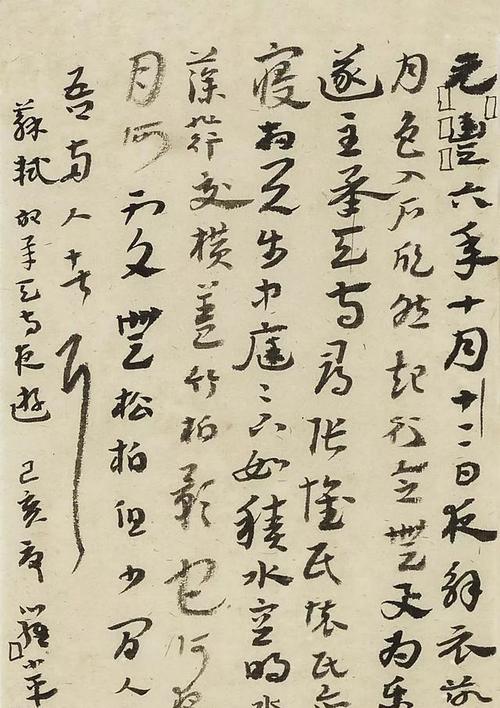 元豐六年十月十二日夜解衣欲
月色入户欣然起行念無與為樂
遂至承天寺尋張懷民懷民亦
寢相與步中庭〻下如積水空明水
藻荇交橫蓋竹柏影也何夜
月何無松柏但少閒人
吾兩人者耳
蘇軾記承天寺夜遊 己亥夏